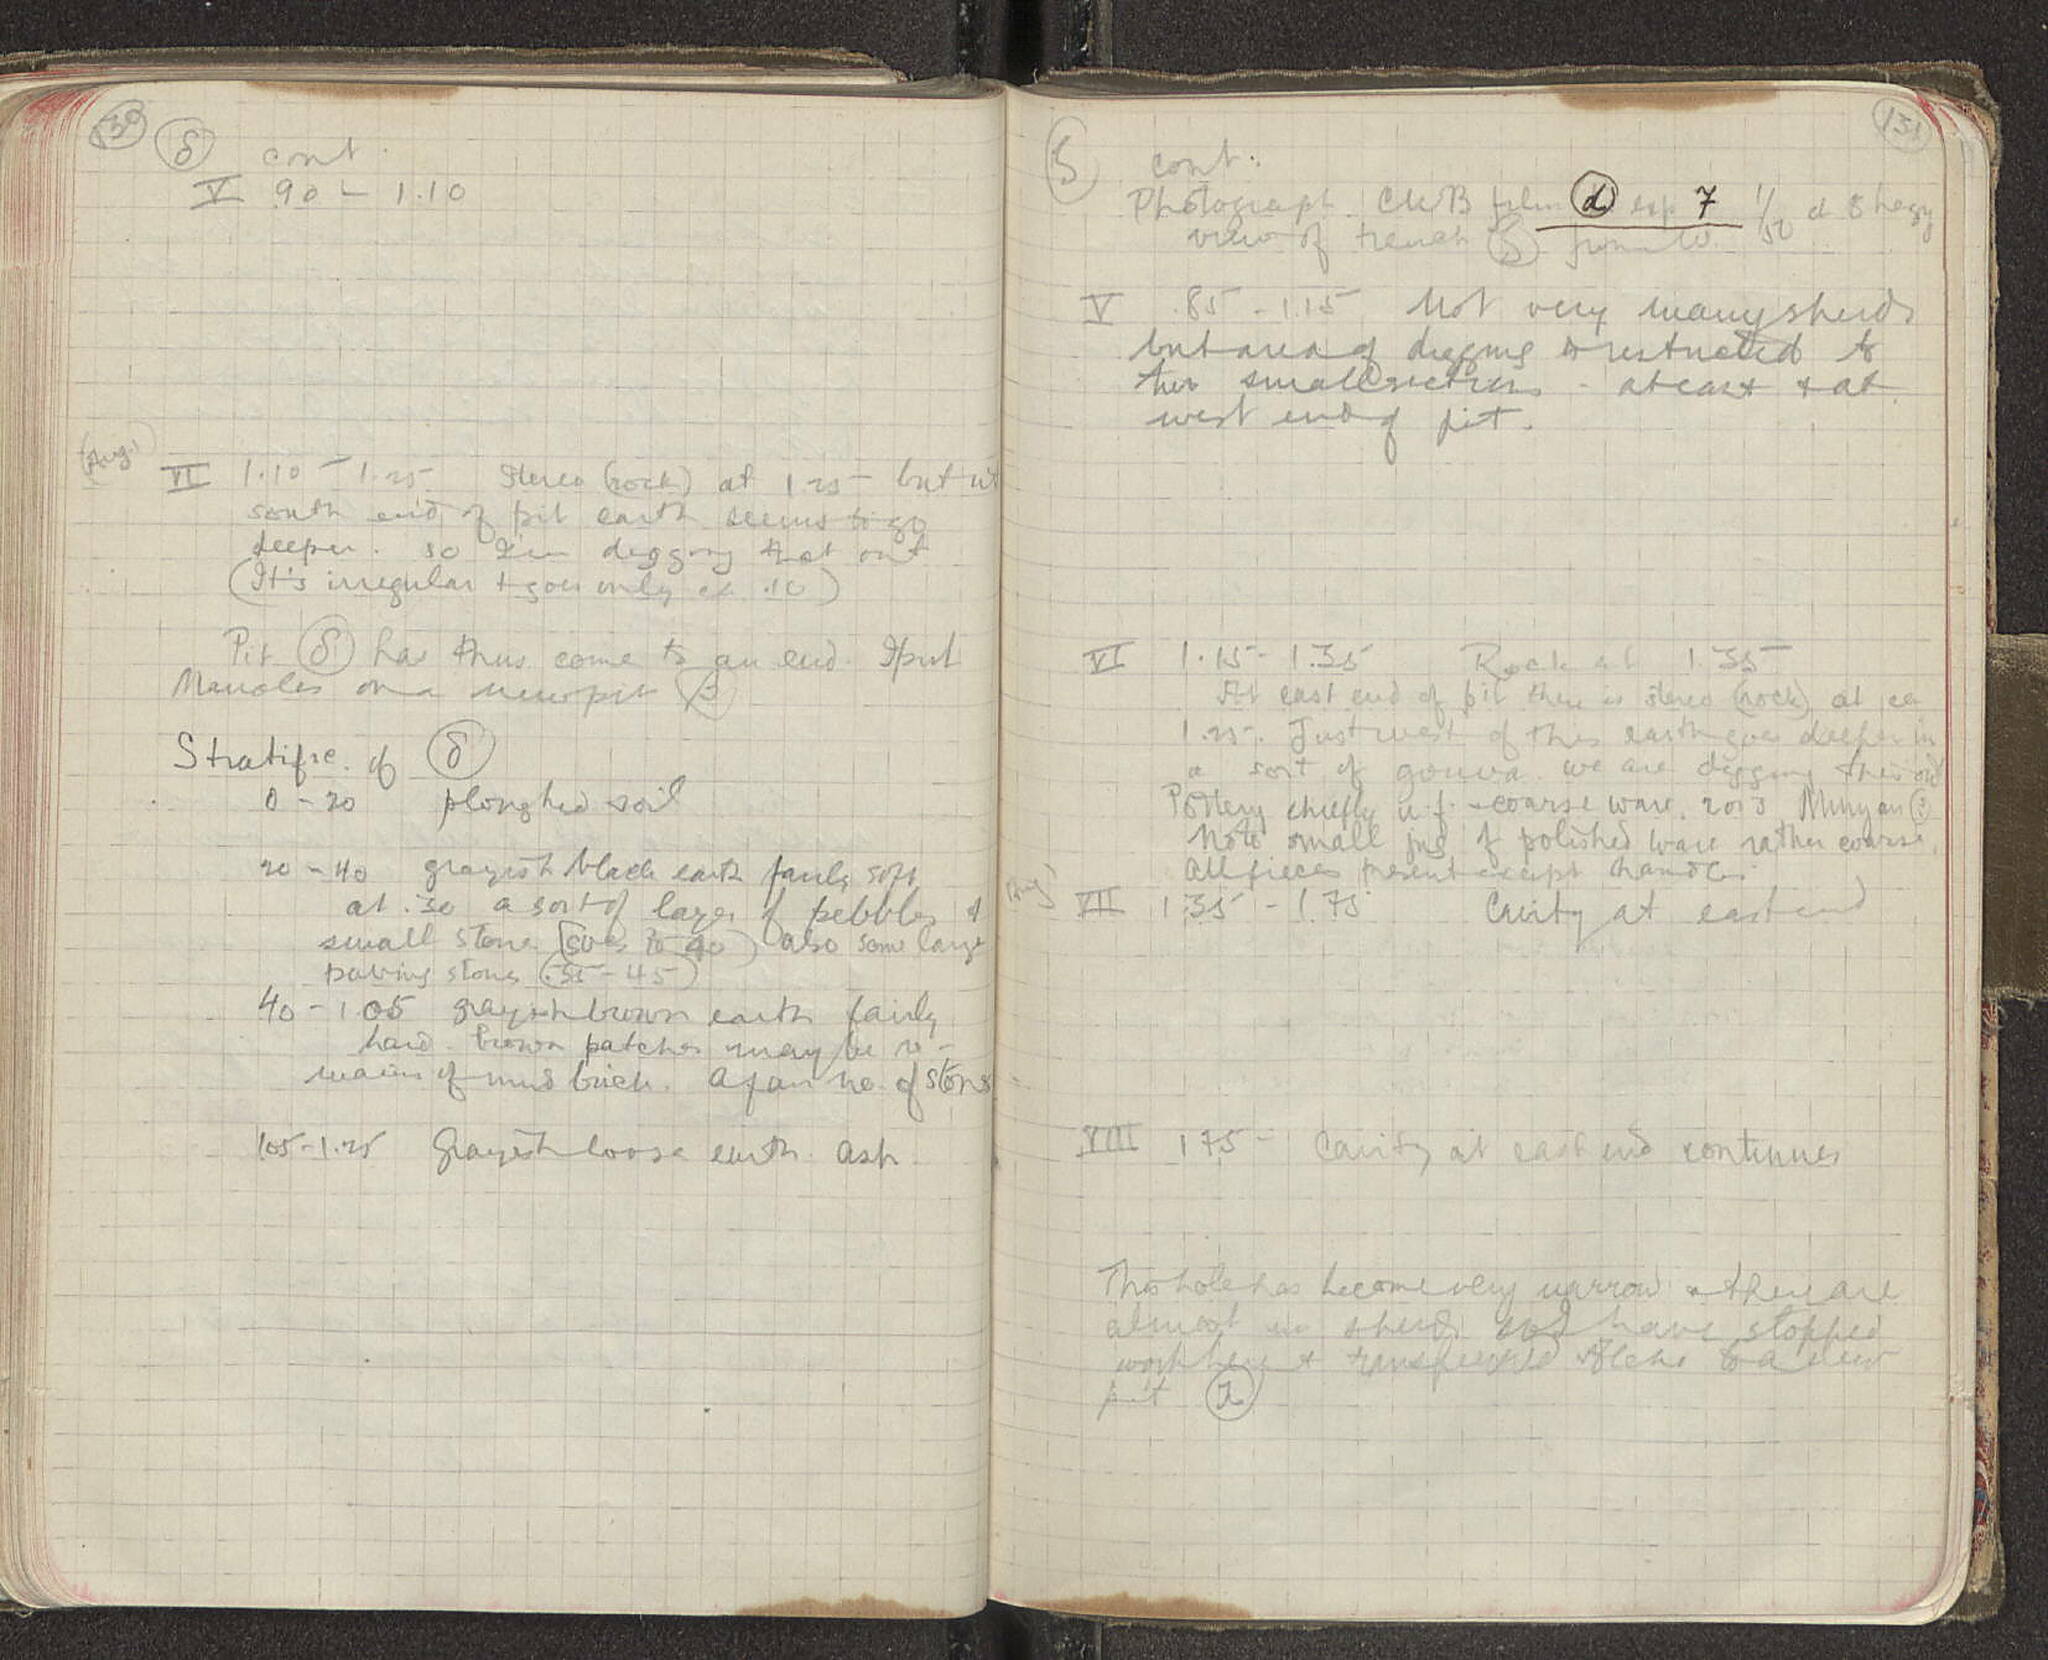 130
δ cont.
V 90 – 1.10
(Aug. 1)
VI 1.10 – 1.25 Stereo (rock) at 1.25 – but at
south end of pit earth seems to go
deeper. so I'm digging that out
(It's irregular + goes only ca .10)
Pit δ has thus come to an end. I put
Manoles on a new pit β
Stratific. of δ
0 – 20 ploughed soil
20 – 40 grayish black earth fairly soft
at .30 a sort of layer of pebbles &
small stones (goes to 40) also some large
paving stones (.35 – 45)
40 – 1.05 grayish brown earth fairly
hard. brown patches may be re-
mains of mud brick. A fair no. of stones
1.05 – 1.25 Grayish loose earth. Ash
131
cont.
Photograph CWB film d exp 7 1/50 d 8 hazy
view of trench from W
V .85 – 1.15 Not very many sherds
but area of digging is restricted to
two small sections – at east + at
west end of pit.
VI 1.15 – 1.35 Rock at 1.35
At east end of pit there is stereo (rock) at ca
1.25. Just west of this earth goes deeper in
a sort of gouva. we are digging this out
Pottery chiefly u.f. + coarse ware. 2 or 3 Minyan (?)
Note small jug of polished ware rather coarse.
All pieces present except handle.
VII 1.35 – 1.75 Cavity at east end
VIII 1.75 – Cavity at east end continues
This hole has become very narrow + there are
almost no sherds so I have stopped
work here + transferred to a new
pit